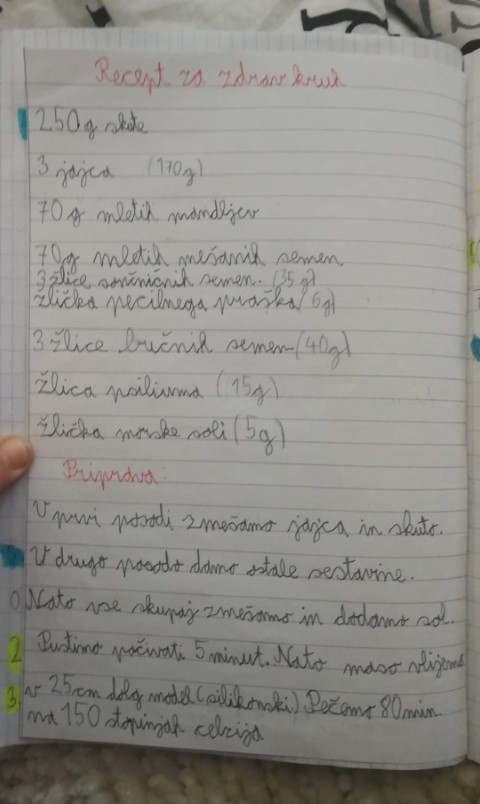 Recept za zdrav kruh
250g skute
3 jajca (170g)
70g mletih mandljev
70g mletih mešanih semen.
3 žlice sončničnih semen. (35g)
žlička pecilnega praška (6g)
3 žlice bučnih semen (40g)
žlica psiliuma (15g)
žlička morske soli (5g)
Priprava:
V prvi posodi zmešamo jajca in skuto.
V drugo posodo damo ostale sestavine.
Nato vse skupaj zmešamo in dodamo sol.
Pustimo počivati 5 minut. Nato maso vlijemo
v 25cm dolg model (silikonski) Pečemo 80min
na 150 stopinjah celzija